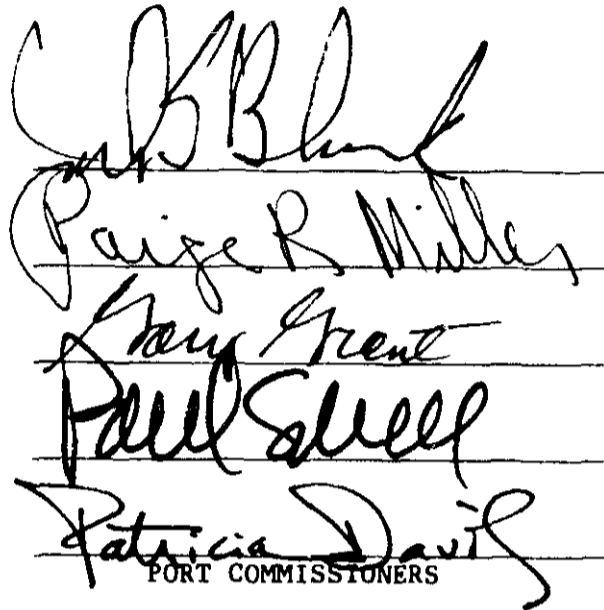 Paige R Miller
Gary Grant
Paul Schell
Patricia Davis
PORT COMMISSIONERS